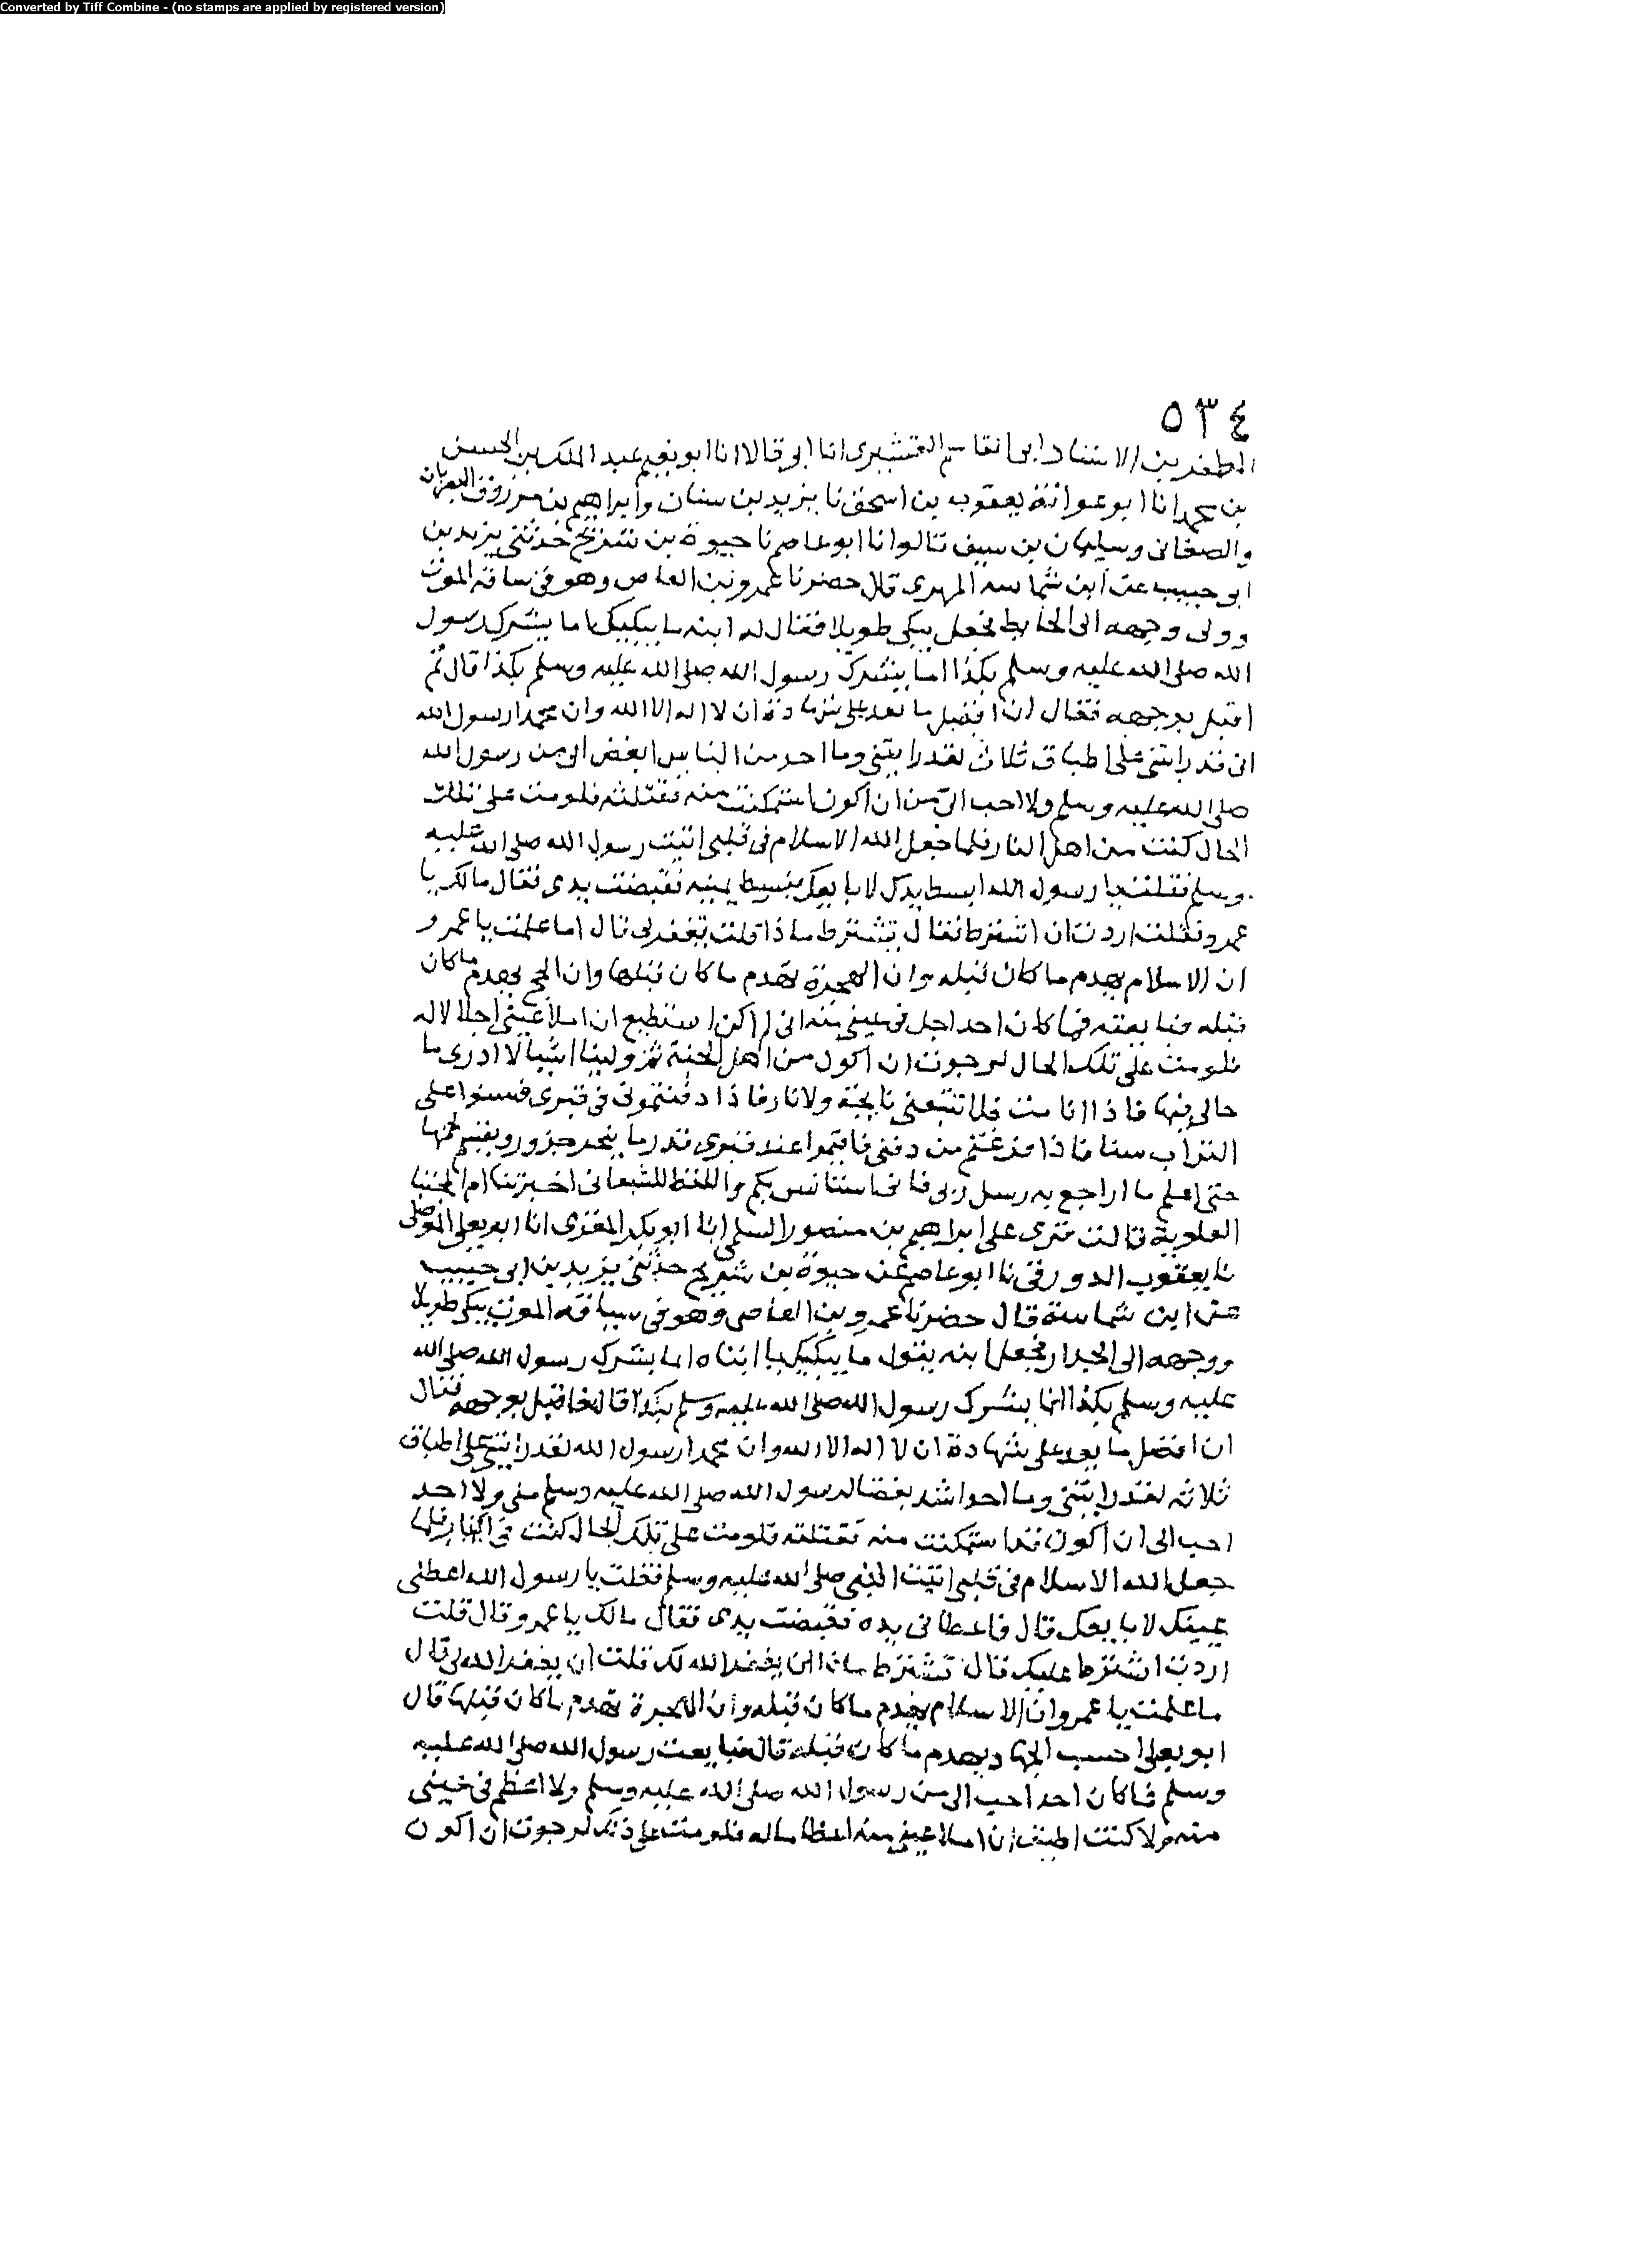 Converted by Tiff Combine - (no stamps are applied by registered version)
٥٣٤
المظفر بن الاستاد ابى القاسم القشيرى انا ابى قالا انا ابو نعيم عبد الملك بن الحسن
بن محمد انا ابو عوانة يعقوب بن اسحق نا يزيد بن سنان وابراهيم بن مرزوق البصريان
والصغانى وسليمان بن سيف قالوا نا ابو عاصم نا حيوة بن شريح حدثنى يزيد بن
ابى حبيب عن ابن شماسه المهرى قال حضرنا عمرو بن العاص وهو فى ساقه الموت
وولى وجهه الى الحايط فجعل يبكى طويلا فقال له ابنه ما يبكيك اما بشرك رسول
الله صلى الله عليه وسلم بكذا اما بشرك رسول الله صلى الله عليه وسلم بكذا قال ثم
اقبل بوجهه فقال ان افضل ما نعد على شهادة ان لا اله الا الله وان محمدا رسول الله
انى قد رايتنى على اطباق ثلاث لقد رايتنى وما احد من الناس ابغض الى من رسول الله
صلى الله عليه وسلم ولا احب الى من ان اكون استمكنت منه فقتلته فلو مت على تلك
الحال كنت من اهل النار فلما جعل الله الاسلام فى قلبى اتيت رسول الله صلى الله عليه
وسلم فقلت يا رسول الله ابسط يدك لابايعك فبسط يمينه فقبضت يدى فقال مالك يا
عمرو فقلت اردت ان اشترط فقال تشترط ماذا قلت تغفر لى قال اما علمت يا عمرو
ان الاسلام يهدم ما كان قبله وان الهجرة تهدم ما كان قبلها وان الحج يهدم ما كان
قبله فبايعته فما كان احد اجل فى عينى منه انى لم اكن استطيع ان املا عينى اجلالا له
فلو مت على تلك الحال لرجوت ان اكون من اهل الجنة ثم ولينا اشيا لا ادرى ما
حالى فيها فاذا انا مت فلا تتبعنى نايحة ولا نار فاذا دفنتمونى فى قبرى فسنوا على
التراب سنا فاذا فرغتم من دفنى فاقيموا عند قبرى قدر ما ينحر جزور ويقسم لحمها
حتى اعلم ما اراجع به رسل ربى فانى استانس بكم واللفظ للشيعانى اخبرتنا ام المجتبا
العلوية قالت قرى على ابراهيم بن منصور السلمى انا ابو بكر المقرى انا ابو يعلى الموصلى
نا يعقوب الدورقى نا ابو عاصم عن حيوة بن شريح حدثنى يزيد بن ابى حبيب
عن ابن شماسة قال حضرنا عمرو بن العاص وهو فى سياقه الموت يبكى طويلا
ووجهه الى الجدار فجعل ابنه يقول ما يبكيك يا ابتاه اما بشرك رسول الله صلى الله
عليه وسلم بكذا اما بشرك رسول الله صلى الله عليه وسلم بكذا قال فاقبل بوجهه فقال
ان افضل ما بعد على شهادة ان لا اله الا الله وان محمدا رسول الله لقد رايتنى على اطباق
ثلاثه لقد رايتنى وما احد اشد بغضا لرسول الله صلى الله عليه وسلم منى ولا احد
احب الى ان اكون قد استمكنت منه فقتلته فلو مت على تلك الحال كنت فى النار فلما
جعل الله الاسلام فى قلبى اتيت النبى صلى الله عليه وسلم فقلت يا رسول الله اعطنى
يمينك لابايعك قال فاعطانى يده فقبضت يدى فقال مالك يا عمرو قال قلت
اردت اشترط عليك قال تشترط ماذا ان يغفر الله لك قلت ان يغفر الله لى قال
ما علمت يا عمرو ان الاسلام يهدم ما كان قبله وان الهجرة تهدم ما كان قبلها قال
ابو يعلى احسب الجهاد يهدم ما كان قبله قال فبايعت رسول الله صلى الله عليه
وسلم فما كان احد احب الى من رسول الله صلى الله عليه وسلم ولا اعظم فى عينى
منه ولا كنت اطيق ان املا عينى منه اعظاما له فلو مت على ذلك لرجوت ان اكون